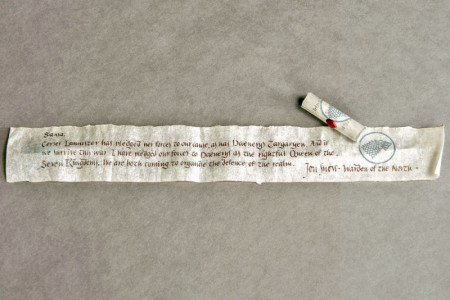 Sansa.
Cersei Lannister has pledged her forces to our cause, as has Daenerys Targaryen. And if
we survive this war I have pledged our forces to Daenerys as the rightful Queen of the
Seven Kingdoms. We are both coming to organise the defence of the realm. Jon Snow - Warden of the North -